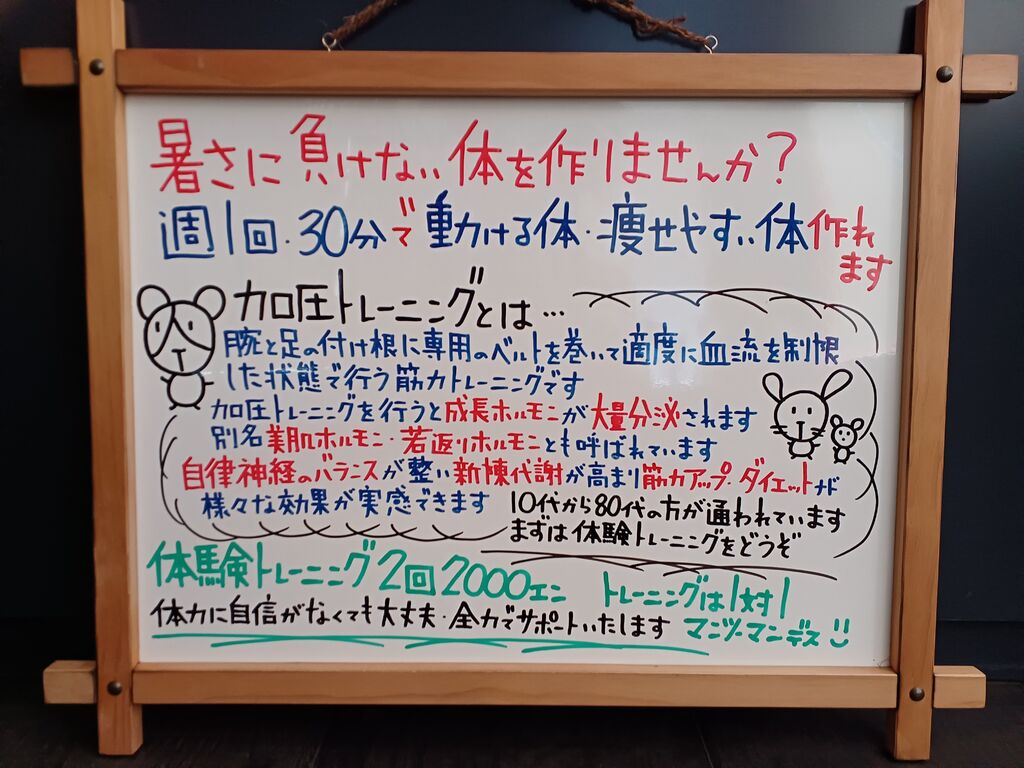 暑さに負けない体を作りませんか?
週1回・30分で動ける体・痩せやすい体作れ
ます
加圧トレーニングとは…
腕と足の付け根に専用のベルトを巻いて適度に血流を制限
した状態で行う筋力トレーニングです
加圧トレーニングを行うと成長ホルモンが大量分泌されます
別名美肌ホルモン・若返りホルモンとも呼ばれています
自律神経のバランスが整い新陳代謝が高まり筋力アップ・ダイエットなど
様々な効果が実感できます
10代から80代の方が通われています
まずは体験トレーニングをどうぞ
体験トレーニング2回2000エン
トレーニングは1対1
マンツーマンデス
体力に自信がなくても大丈夫・全力でサポートいたします